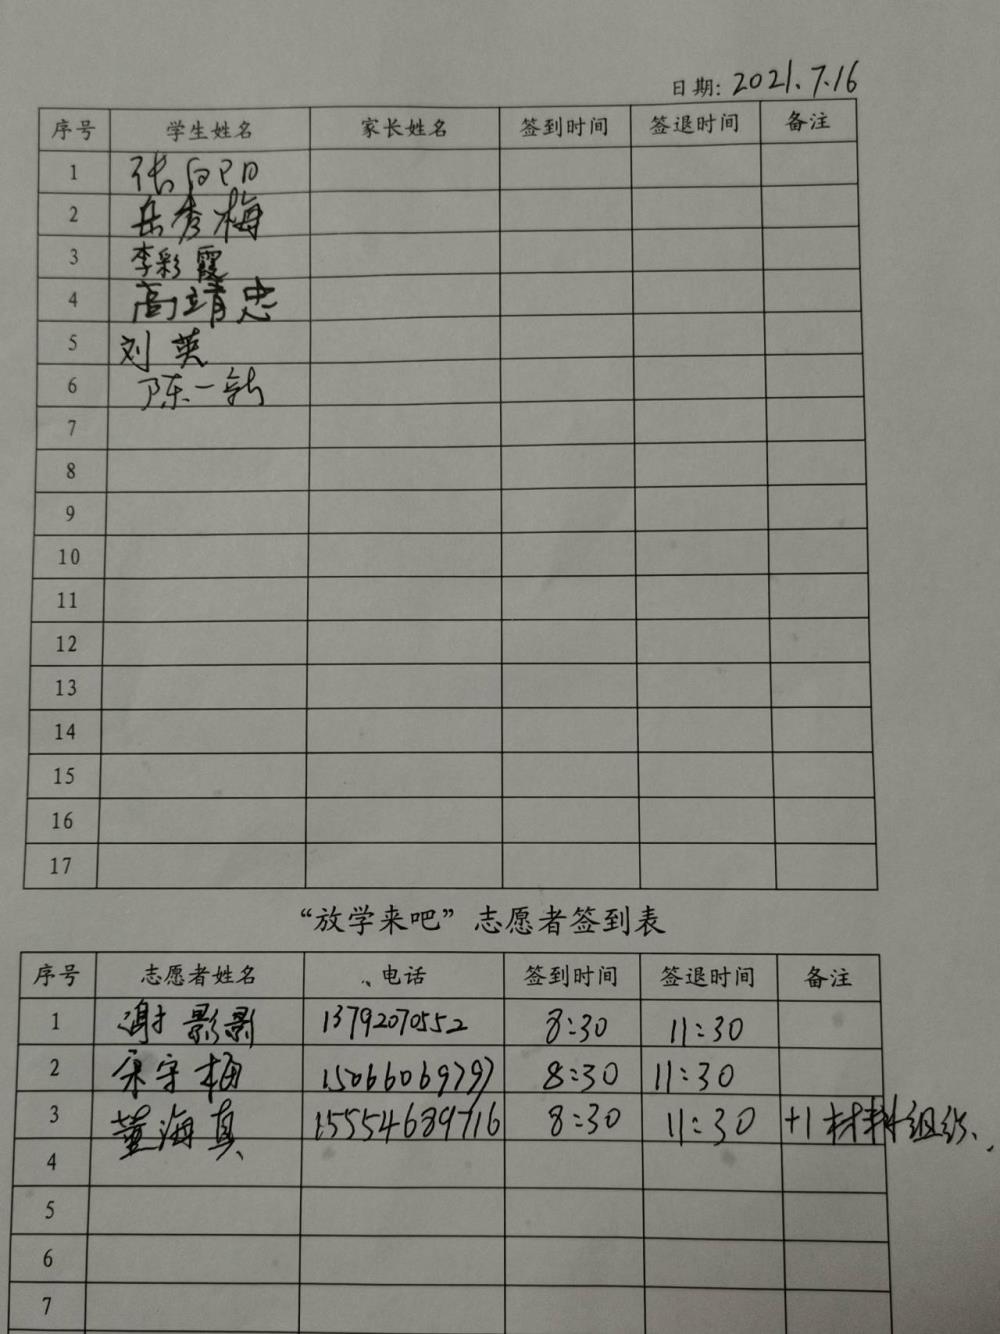 日期: 2021.7.16
序号 学生姓名 家长姓名 签到时间 签退时间 备注
1 张向阳
2 岳秀梅
3 李彩霞
4 高靖忠
5 刘英
6 陈一
7
8
9
10
11
12
13
14
15
16
17
“放学来吧”志愿者签到表
序号 志愿者姓名 、电话 签到时间 签退时间 备注
1 谢影影 13792070552 8:30 11:30
2 宋守梅 15066069797 8:30 11:30
3 董海真 15554689716 8:30 11:30 +1材料组织、
4
5
6
7